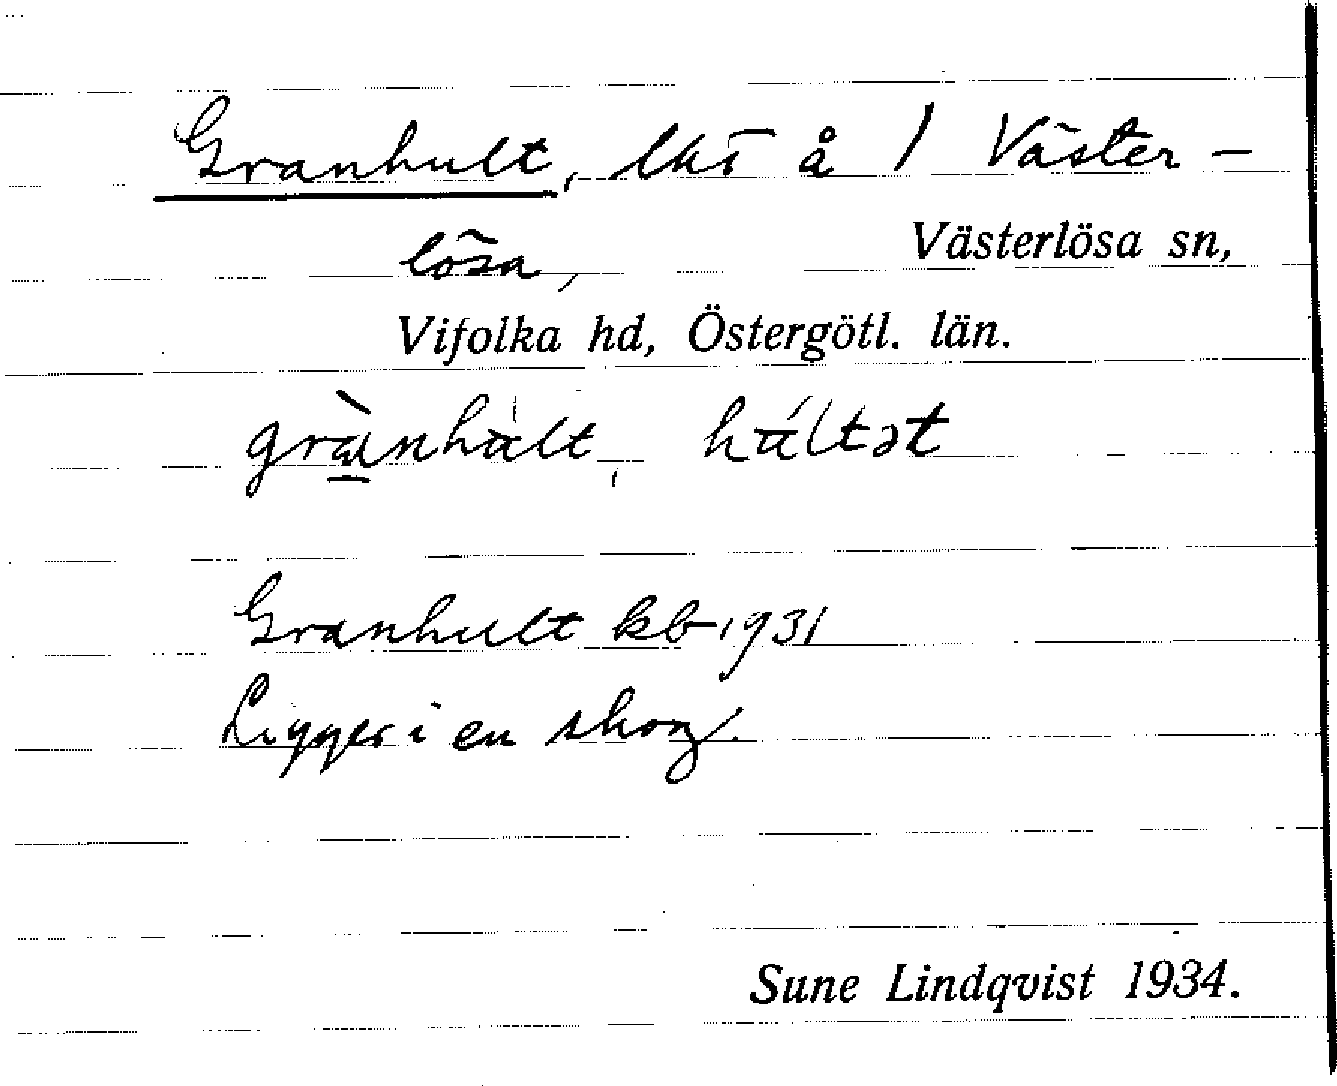 Granhult, lht å 1 Väster-
lösa, Västerlösa sn,
Vifolka hd, Östergötl. län.
grànhält, háltət
Granhult kb 1931
Ligger i en skog.
Sune Lindqvist 1934.